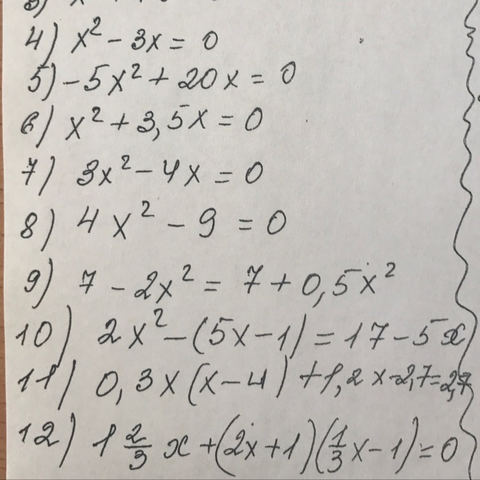 4) x² - 3x = 0
5) -5x² + 20x = 0
6) x² + 3,5x = 0
7) 3x² - 4x = 0
8) 4x² - 9 = 0
9) 7 - 2x² = 7 + 0,5x²
10) 2x² - (5x - 1) = 17 - 5x
11) 0,3x(x - 4) + 1,2x - 2,7 = 2,7
12) 1 2/3 x + (2x + 1)(1/3 x - 1) = 0